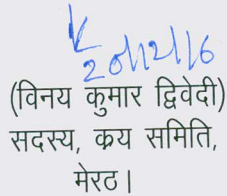 20/12/16
(विनय कुमार द्विवेदी)
सदस्य, क्रय समिति,
मेरठ।